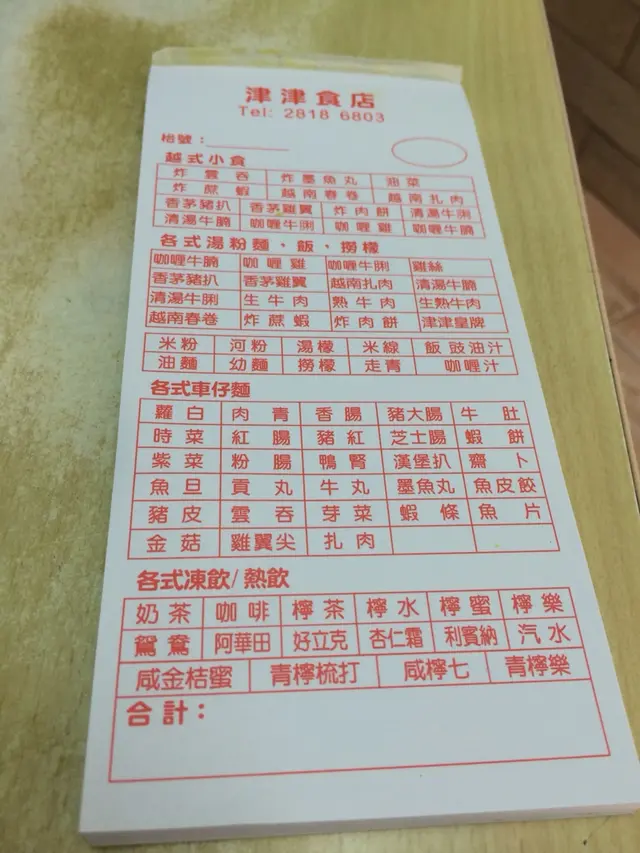 津津食店
Tel: 2818 6803
枱號：
越式小食
炸雲吞 炸墨魚丸 油菜
炸蔗蝦 越南春卷 越南扎肉
香茅豬扒 香茅雞翼 炸肉餅 清湯牛脷
清湯牛腩 咖喱牛脷 咖喱雞 咖喱牛腩
各式湯粉麵、飯、撈檬
咖喱牛腩 咖喱雞 咖喱牛脷 雞絲
香茅豬扒 香茅雞翼 越南扎肉 清湯牛腩
清湯牛脷 生牛肉 熟牛肉 生熟牛肉
越南春卷 炸蔗蝦 炸肉餅 津津皇牌
米粉 河粉 湯檬 米線 飯 豉油汁
油麵 幼麵 撈檬 走青 咖喱汁
各式車仔麵
蘿白 肉青 香腸 豬大腸 牛肚
時菜 紅腸 豬紅 芝士腸 蝦餅
紫菜 粉腸 鴨腎 漢堡扒 齋卜
魚旦 貢丸 牛丸 墨魚丸 魚皮餃
豬皮 雲吞 芽菜 蝦條 魚片
金菇 雞翼尖 扎肉
各式凍飲/熱飲
奶茶 咖啡 檸茶 檸水 檸蜜 檸樂
鴛鴦 阿華田 好立克 杏仁霜 利賓納 汽水
咸金桔蜜 青檸梳打 咸檸七 青檸樂
合計：